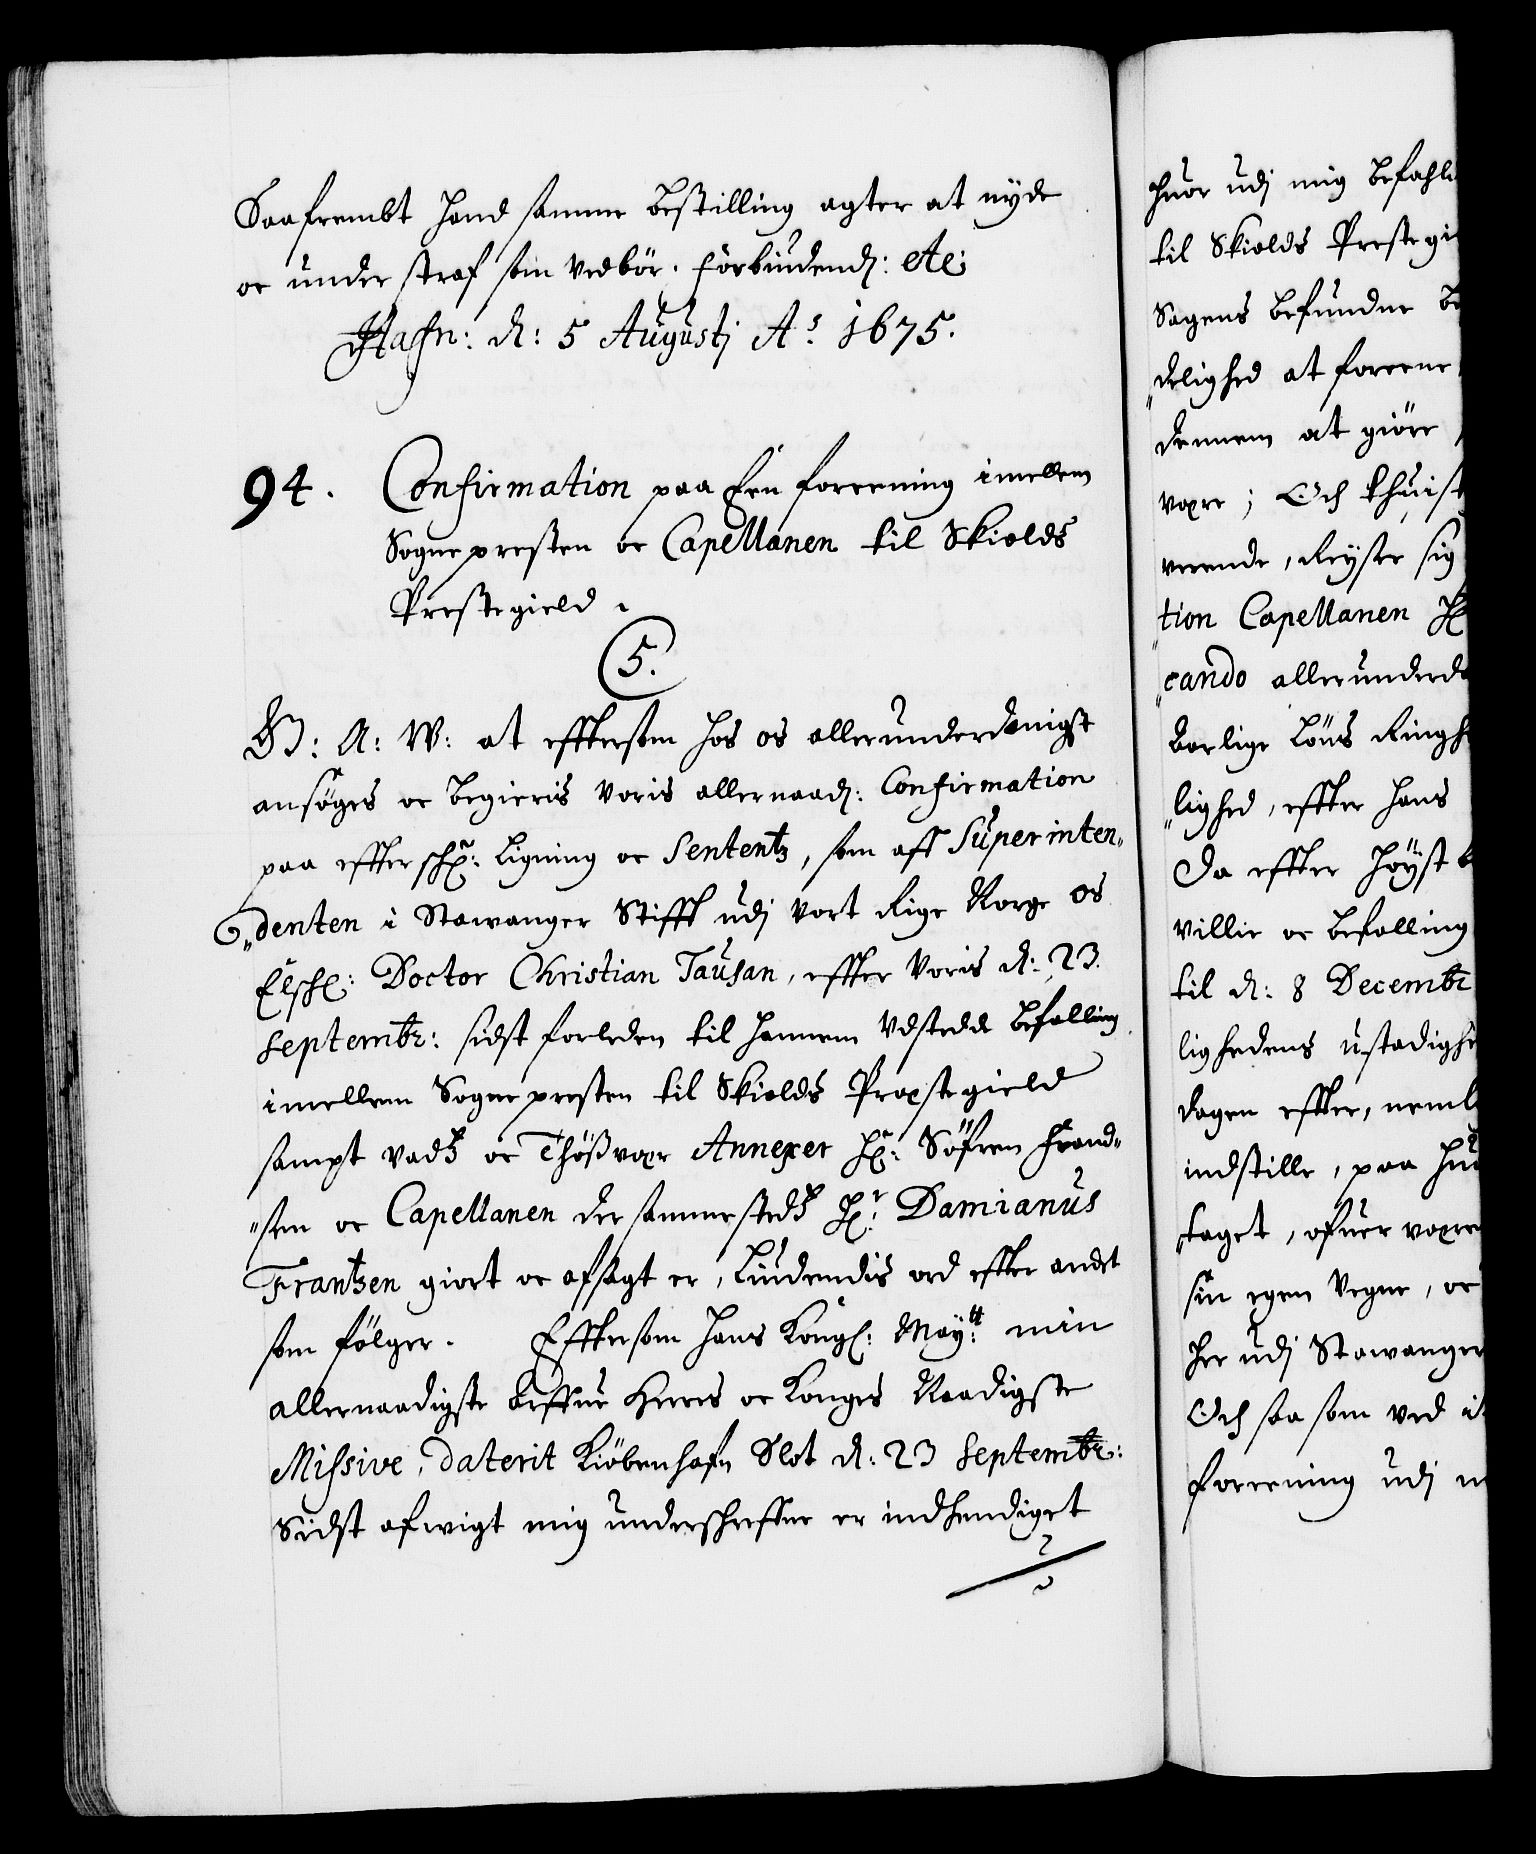 Saafrembt hand samme bestilling agter at nyde
oc under straf som vedbör. Forbiudend: etc:
Hafn: d: 5 Augustj Ao 1675.
94. Confirmation paa Een foreening imellem
Sognepresten oc Capellanen til Skiolds
Prestegield.
5.
G: A: W: at efftersom hos os allerunderdanigst
ansöges oc begieris Voris allernaad: Confirmation
paa effterschr: Ligning oc Sententz, som aff Superinten„
„denten i Stawanger Stifft udj Vort Rige Norge os
Elschl: Doctor Christian Tausan, effter Voris d: 23.
Septembr: sidst forleden til hannem Udstedde befalling
imellem Sognepresten til Skiolds Prestegield
sampt Vads oc Thößvær Annexer Hr: Söfren Frand„
„sen oc Capellanen der sammesteds Hr: Damianus
Frantzen giort oc afsagt er, Liudendis ord effter andet
som fölger. Efftersom hans Kongl: Maytt: min
allernaadigste Arffue Herres oc Konges Naadigste
Missive, daterit Kiöbenhafn Slot d: 23 Septembr:
Sidst afwigt mig underschreffne er indhendiget
huor udj mig befahl
til Skiolds Prestegi
Sagens befundne be
„delighed at foreene
dennem at giöre
være; Och thuist
verende, Reyste sig
tion Capellanen Hr
„cando allerunderda
barlige Löns Ringh
„lighed, effter hans
Da effter höyst b
villie oc befalling
til d: 8 Decembr
lighedens ustadighe
dagen effter, neml
indstille, paa hu
taget, ofuer være
sin egen Vegne, oc
her udj Stawanger
Och saa som ved it
foreening udj m